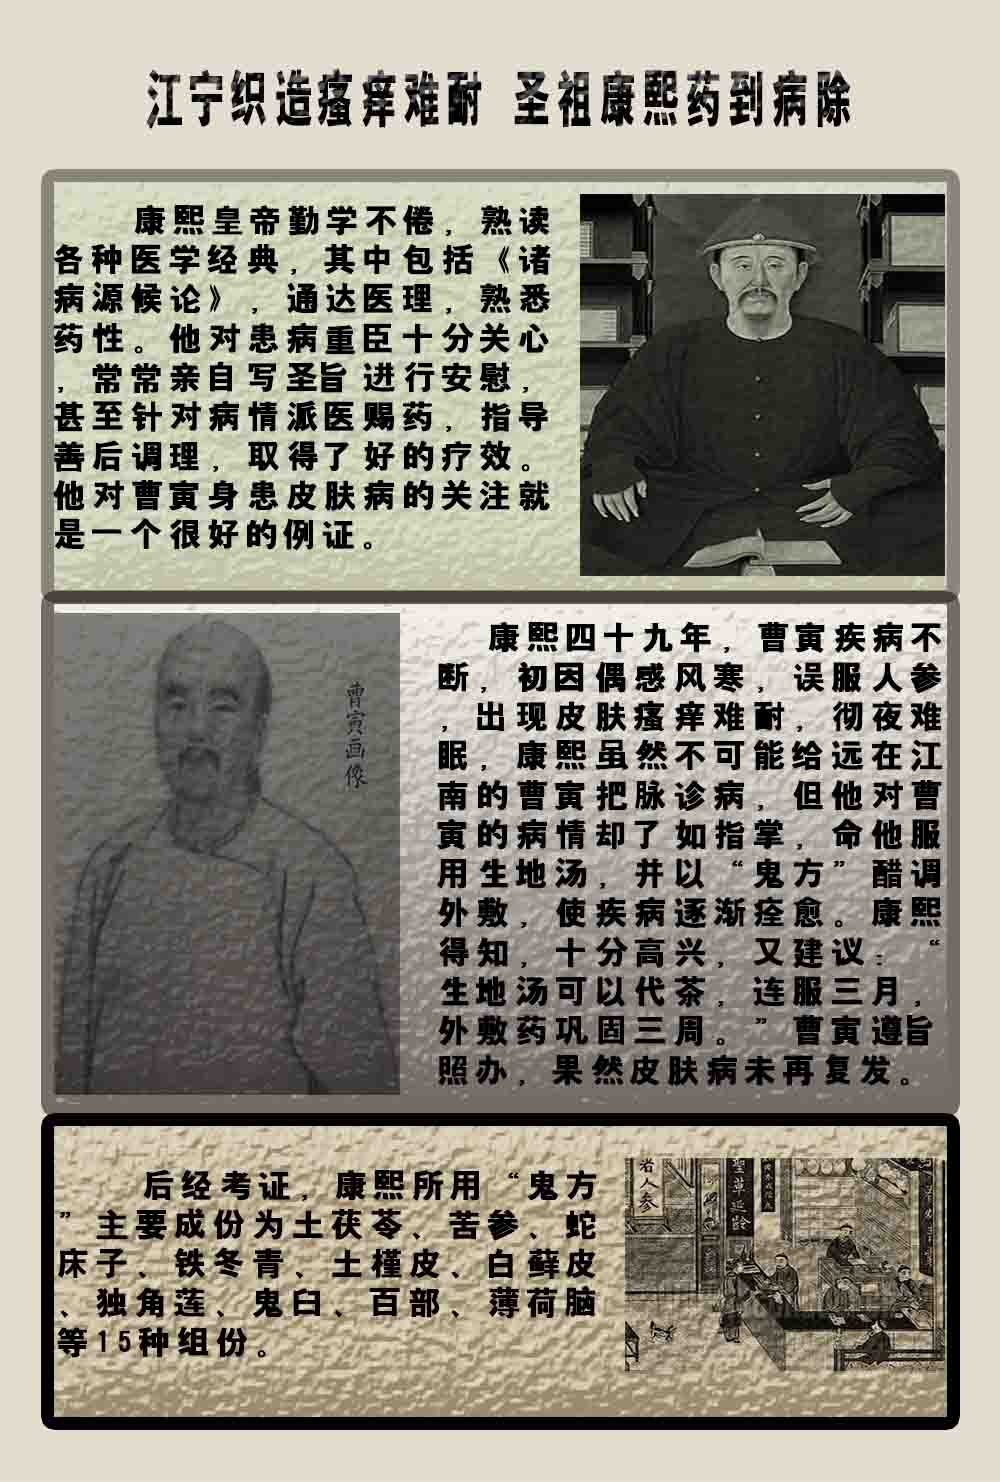 江宁织造瘙痒难耐 圣祖康熙药到病除
康熙皇帝勤学不倦，熟读
各种医学经典，其中包括《诸
病源候论》，通达医理，熟悉
药性。他对患病重臣十分关心
，常常亲自写圣旨进行安慰，
甚至针对病情派医赐药，指导
善后调理，取得了好的疗效。
他对曹寅身患皮肤病的关注就
是一个很好的例证。
曹寅画像
康熙四十九年，曹寅疾病不
断，初因偶感风寒，误服人参
，出现皮肤瘙痒难耐，彻夜难
眠，康熙虽然不可能给远在江
南的曹寅把脉诊病，但他对曹
寅的病情却了如指掌，命他服
用生地汤，并以“鬼方”醋调
外敷，使疾病逐渐痊愈。康熙
得知，十分高兴，又建议：“
生地汤可以代茶，连服三月，
外敷药巩固三周。”曹寅遵旨
照办，果然皮肤病未再复发。
后经考证，康熙所用“鬼方
”主要成份为土茯苓、苦参、蛇
床子、铁冬青、土槿皮、白藓皮
、独角莲、鬼臼、百部、薄荷脑
等15种组份。
人参